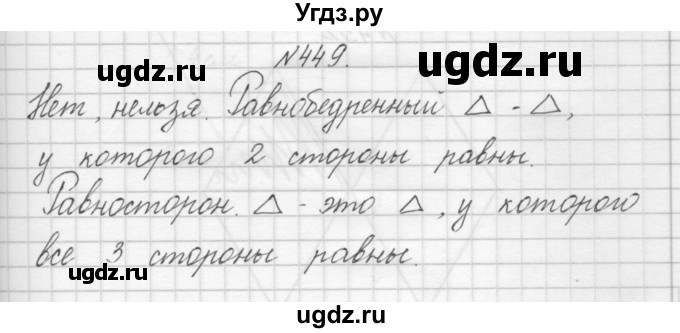 Угдз.ру
№449.
Нет, нельзя. Равнобедренный △ - △,
у которого 2 стороны равны.
Равносторон. △ - это △, у которого
все 3 стороны равны.
ugdz.ru ugdz.ru
ugdz.ru ugdz.ru
ugdz.ru ugdz.ru